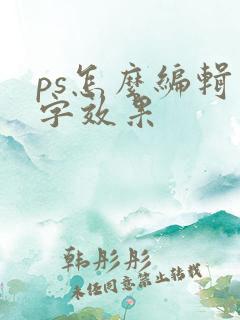 ps怎么编辑
字效果
韩彤彤
未经同意禁止转载